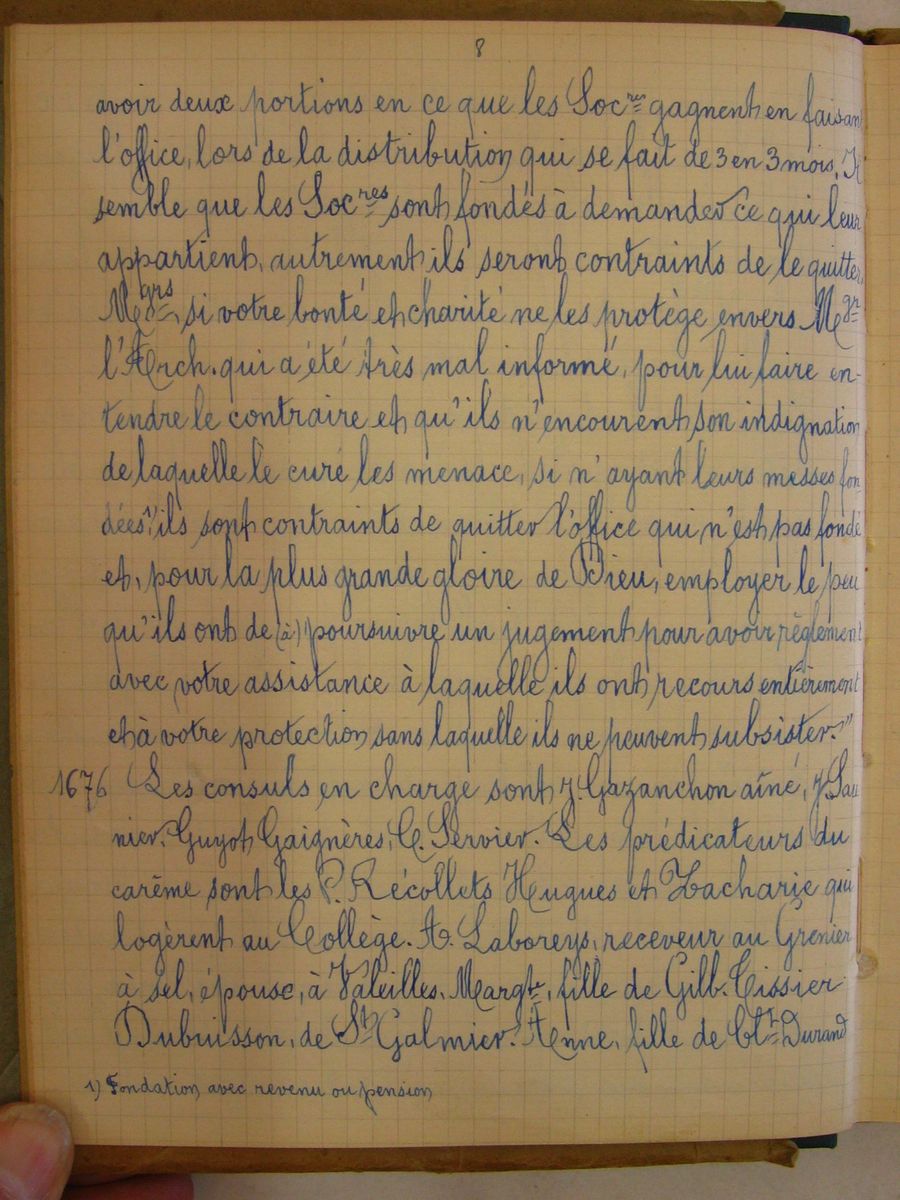 8
avoir deux portions en ce que les Socres gagnent en faisan
l'office, lors de la distribution qui se fait de 3 en 3 mois. Il
semble que les Socres sont fondés à demander ce qui leur
appartient, autrement ils seront contraints de le quitter,
Mgrs, si votre bonté et charité ne les protège envers Mgr
l'Arch. qui a été très mal informé, pour lui faire en-
tendre le contraire et qu'ils n'encourent son indignation
de laquelle le curé les menace, si n'ayant leurs messes fon
dées 1) ils sont contraints de quitter l'office qui n'est pas fondé
et, pour la plus grande gloire de Dieu, employer le peu
qu'ils ont de (à) poursuivre un jugement pour avoir règlement
avec votre assistance à laquelle ils ont recours entièrement
et à votre protection sans laquelle ils ne peuvent subsister."
1676 Les consuls en charge sont J. Gazanchon aîné, J. Sau
nier, Guyot Gaignères, C. Servier. Les prédicateurs du
carême sont les P. Récollets Hugues et Zacharie qui
logèrent au Collège. A. Laboreys, receveur au Grenier
à sel, épouse, à Valeilles, Margte, fille de Gilb. Tissier
Dubuisson, de St Galmier. Anne, fille de Clt Durand
1) Fondation avec revenu ou pension